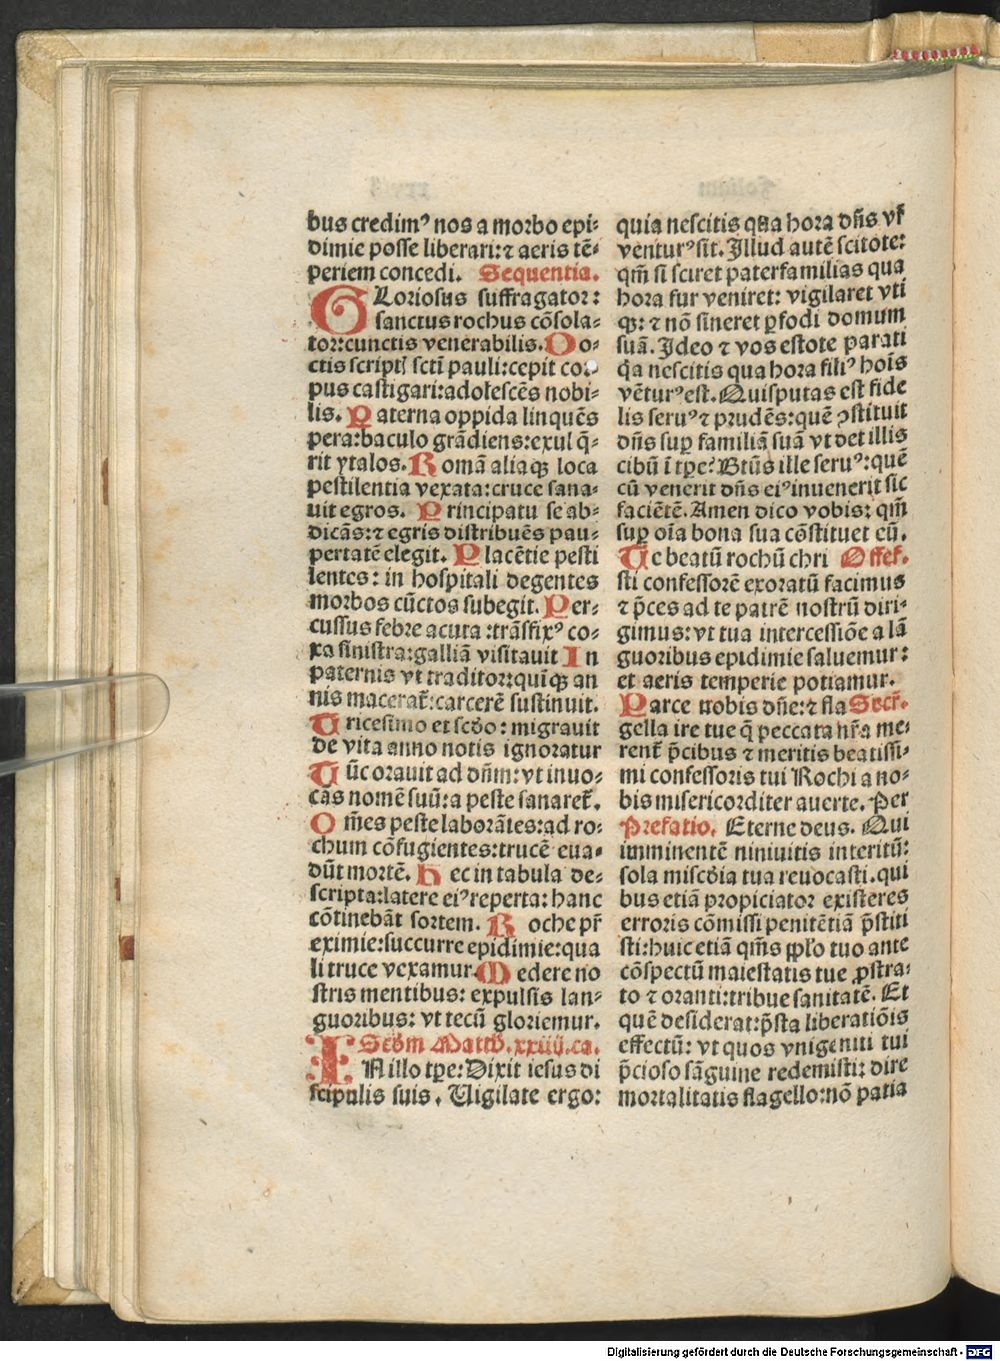 bus credimꝰ nos a morbo epi-
dimie posse liberari: ⁊ aeris tē-
periem concedi. Sequentia.
GLoriosus suffragator:
sanctus rochus cōsola-
tor: cunctis venerabilis. Do-
ctis scriptꝭ scti pauli: cepit cor-
pus castigari: adolescēs nobi-
lis. Paterna oppida linquēs
pera: baculo grādiens: exul q̄-
rit ytalos. Romā aliaqꝫ loca
pestilentia vexata: cruce sana-
uit egros. Principatu se ab-
dicās: ⁊ egris distribuēs pau-
pertatē elegit. Placētie pesti
lentes: in hospitali degentes
morbos cūctos subegit. Per-
cussus febre acuta: trāsfixꝰ co-
xa sinistra: galliā visitauit In
paternis vt traditor: quīqꝫ an
nis macerat̄: carcerē sustinuit.
Tricesimo et scd̄o: migrauit
de vita anno notis ignoratur
Tūc orauit ad dn̄m: vt inuo-
cās nomē suū: a peste sanaret̄.
Om̄es peste laborātes: ad ro-
chum cōfugientes: trucē eua-
dūt mortē. Hec in tabula de-
scripta: latere eiꝰ reperta: hanc
cōtinebāt sortem. Roche pr̄
eximie: succurre epidimie: qua
li truce vexamur. Medere no
stris mentibus: expulsis lan-
guoribus: vt tecū gloriemur.
Scd̄m Matth̄. xxiiij. ca.
IN illo tp̄e: Dixit iesus di
scipulis suis. Uigilate ergo:
quia nescitis qua hora dn̄s vr̄
venturꝰ sit. Illud autē scitote:
qm̄ si sciret paterfamilias qua
hora fur veniret: vigilaret vti
qꝫ: ⁊ nō sineret ꝑfodi domum
suā. Ideo ⁊ vos estote parati
q̄a nescitis qua hora filiꝰ hoīs
vēturꝰ est. Quisputas est fide
lis seruꝰ ⁊ prudēs: quē ꝯstituit
dn̄s suꝑ familiā suā vt det illis
cibū ī tp̄e? Btūs ille seruꝰ: quē
cū venerit dn̄s eiꝰ inuenerit sic
faciētē. Amen dico vobis: qm̄
suꝑ oīa bona sua cōstituet eū.
Te beatū rochū chri Offer̄.
sti confessorē exoratū facimus
⁊ p̄ces ad te patrē nostrū diri-
gimus: vt tua intercessiōe a lā
guoribus epidimie saluemur:
et aeris temperie potiamur.
Parce nobis dn̄e: ⁊ fla Secr̄.
gella ire tue q̄ peccata nr̄a me-
rent̄ p̄cibus ⁊ meritis beatissi-
mi confessoris tui Rochi a no-
bis misericorditer auerte. Per
Prefatio. Eterne deus. Qui
imminentē niniuitis interitū:
sola miscd̄ia tua reuocasti. qui
bus etiā propiciator existeres
erroris cōmissi penitētiā p̄stiti
sti: huic etiā qm̄s ppl̄o tuo ante
cōspectū maiestatis tue ꝓstra-
to ⁊ oranti: tribue sanitatē. Et
quē desiderat: p̄sta liberatiōis
effectū: vt quos vnigeniti tui
p̄cioso sāguine redemisti: dire
mortalitatis flagello: nō patia
Digitalisierung gefördert durch die Deutsche Forschungsgemeinschaft - DFG